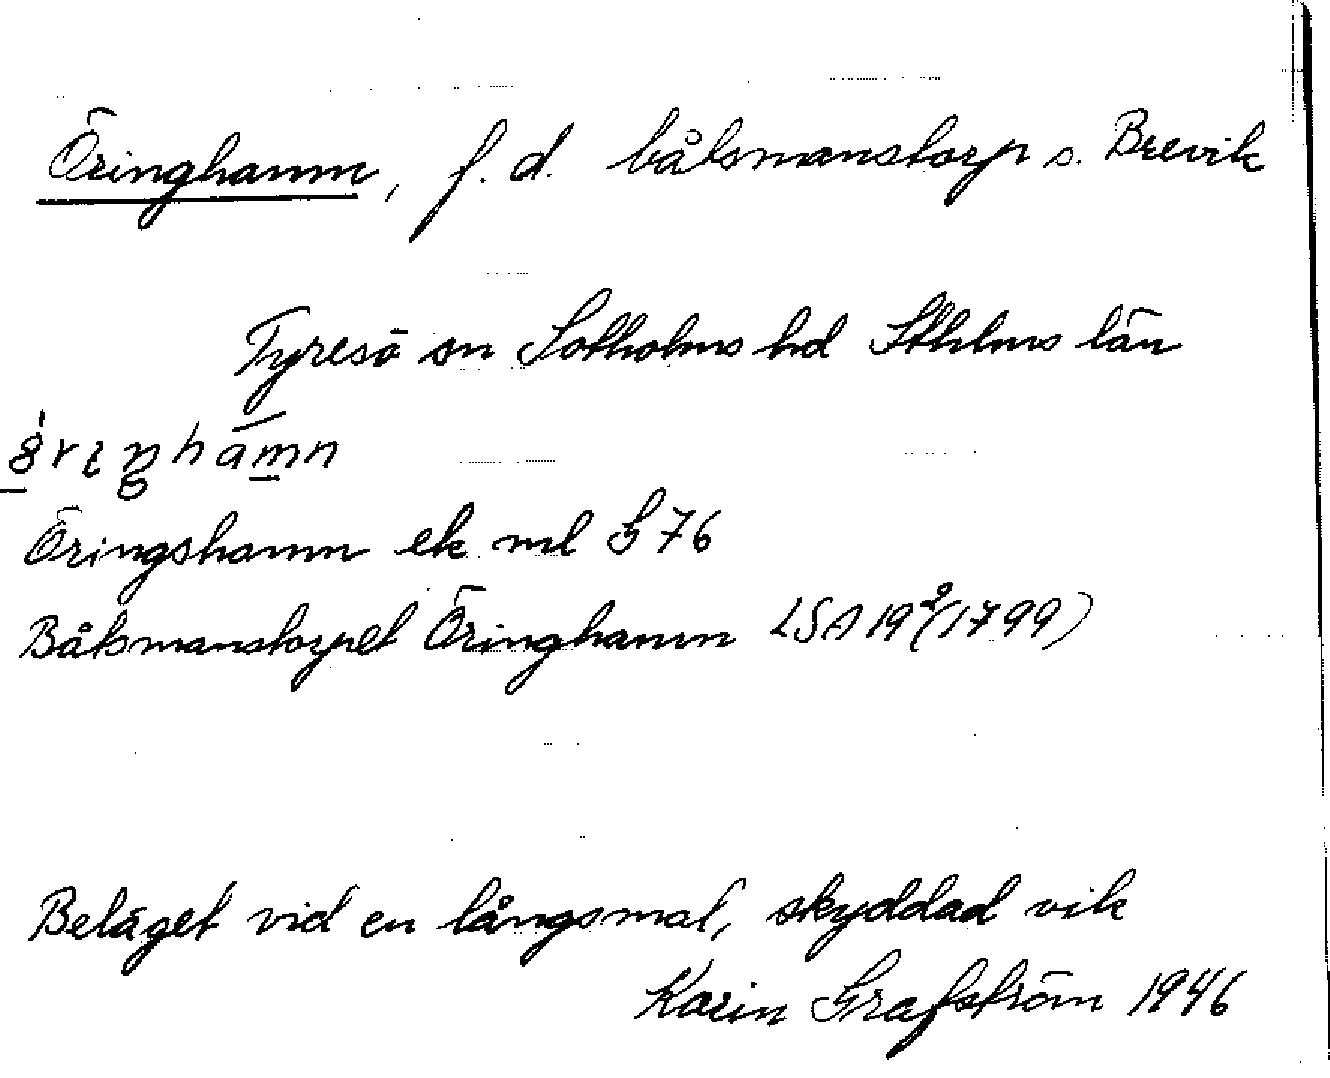 Öringhamn, f. d. båtsmanstorp s. Brevik
Tyresö sn Sotholms hd Sthlms län
Öringshamn ek ml G 76
Båtsmanstorpet Öringhamn LSA 19²(1799)
Beläget vid en långsmal, skyddad vik
Karin Grafström 1946